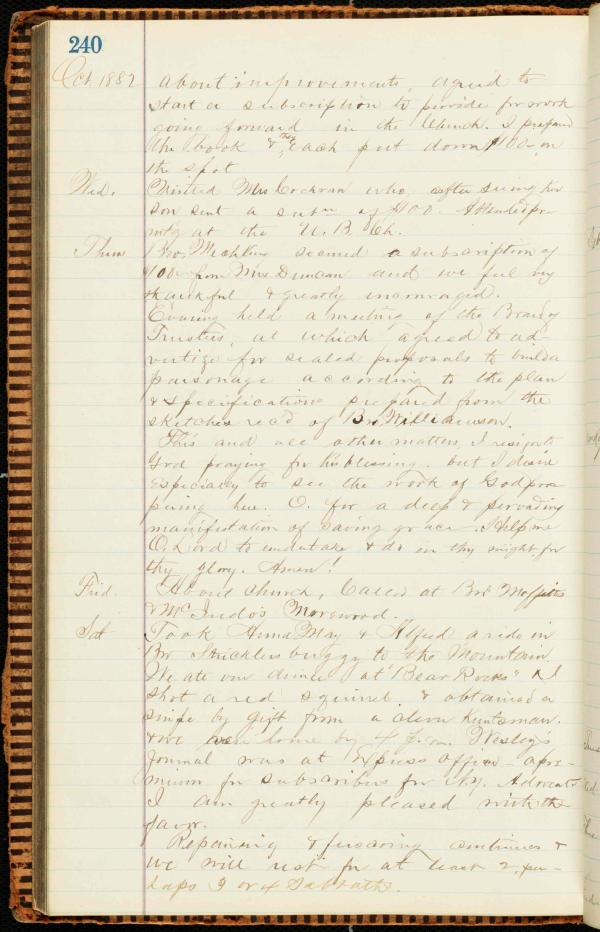 240
Oct. 1882 about improvements, agreed to
start a subscription to provide for work
going forward in the Church. I prepared
the book & they each put down $100 on
the spot
Wed. Visited Mrs Cochran who, after seeing her
son sent a subn of $100. Attended pr-
mtg at the U. B. Ch.
Thurs Bro. Mechling secured a subscription of
100 from Mrs Duncan and we feel very
thankful & greatly encouraged.
Evening held a meeting of the Board of
Trustees, at which agreed to ad-
vertize for sealed proposals to build a
parsonage according to the plan
& specifications prepared from the
sketches recd of Bro. Williamson.
This and all other matters, I resign to
God praying for his blessing. but I desire
especially to see the work of God pros-
pering here. O. for a deep & pervading
manifestation of saving grace. Help me
O. Lord to undertake & do in thy might for
thy glory. Amen!
Frid. About church, Called at Bro
& Morewood.
Sat Took Anna May & Alfred a ride in
Bro Stricklers buggy to the Mountain.
We ate our dinner at "Bear Rocks" & I
shot a red squirrel & obtained a
snipe by gift from a huntsman.
& we were home by 4 P.m. Wesley's
Journal was at Express office - a pre-
mium for subscribers for N.Y. Advocate
I am greatly pleased with the
favor.
Repairing & frescoing continues &
we will rest for at least 2, per-
haps 3 or 4 Sabbaths.